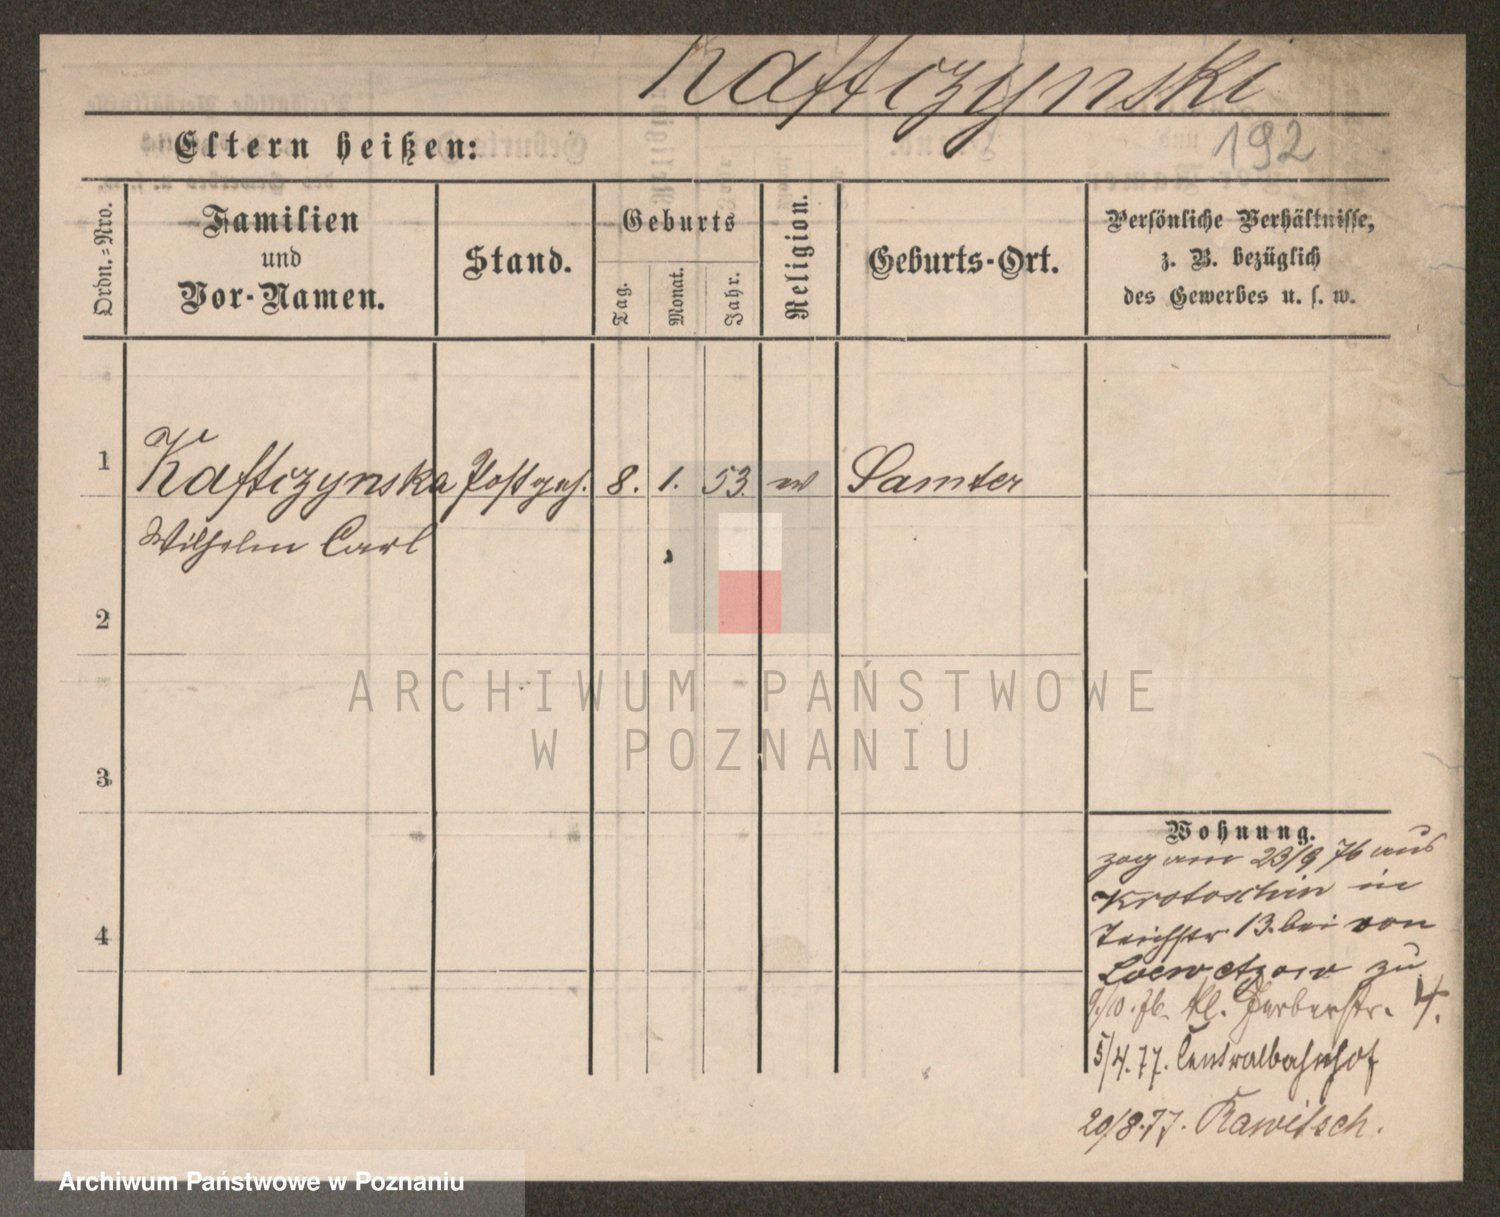 Kaftczynski
192
Eltern heißen:
Ordn.-Nro.
Familien
und
Vor-Namen.
Stand.
Geburts
Tag.
Monat.
Jahr.
Religion.
Geburts-Ort.
Persönliche Verhältnisse,
z. B. bezüglich
des Gewerbes u. s. w.
1 Kaftczynska Postgeh. 8. 1. 53. Samter
Wilhelm Carl
2
3
4
ARCHIWUM PAŃSTWOWE
W POZNANIU
Wohnung.
zog am 23/9 76 aus
Krotoschin in
Teichstr. 13. bei von
zu
9/10. 76. kl. Gerberstr. 4.
5/4. 77. Centralbahnhof
20/8. 77. Rawitsch.
Archiwum Państwowe w Poznaniu